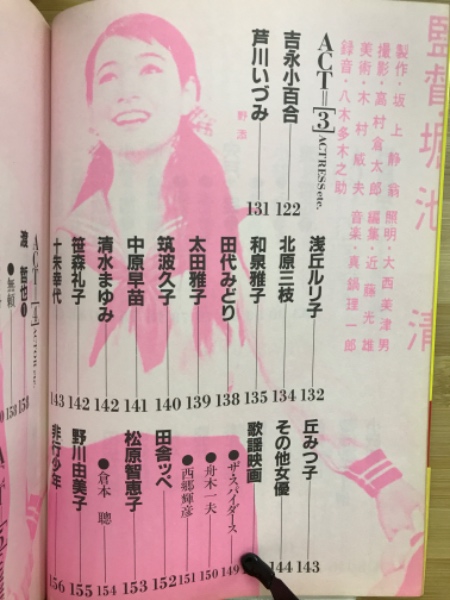 監督・堀池 清
製作・坂上静翁 照明・大西美津男
撮影・高村倉太郎 編集・近藤光雄
美術・木村威夫 音楽・真鍋理一郎
録音・八木多木之助
ACT=[3] ACTRESS etc.
吉永小百合 122
芦川いづみ 131
浅丘ルリ子 132
北原三枝 134
和泉雅子 135
田代みどり 138
太田雅子 139
筑波久子 140
中原早苗 141
清水まゆみ 142
笹森礼子 142
十朱幸代 143
丘みつ子 143
その他女優 144
歌謡映画
●ザ・スパイダース 149
●舟木一夫 150
●西郷輝彦 151
田舎ッペ 152
松原智恵子 153
●倉本 聰 154
野川由美子 155
非行少年 156
ACT=[4] ACTOR etc.
渡 哲也❶ 158
●無頼 158